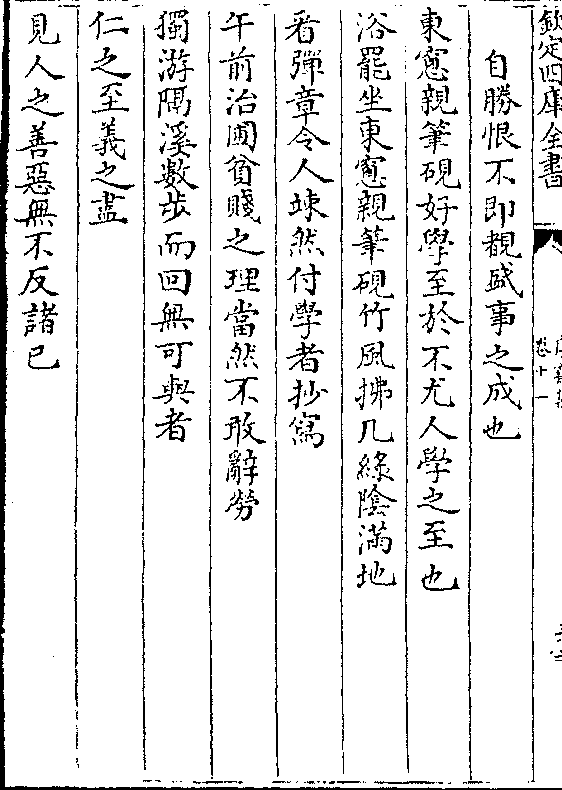 欽定四庫全書
卷十一
自勝恨不即覩盛事之成也
東窻親筆硯好學至於不尤人學之至也
浴罷坐東窻親筆硯竹風拂几綠陰滿地
看彈章令人竦然付學者抄寫
午前治圃貧賤之理當然不敢辭勞
獨游隔溪數步而回無可與者
仁之至義之盡
見人之善惡無不反諸已